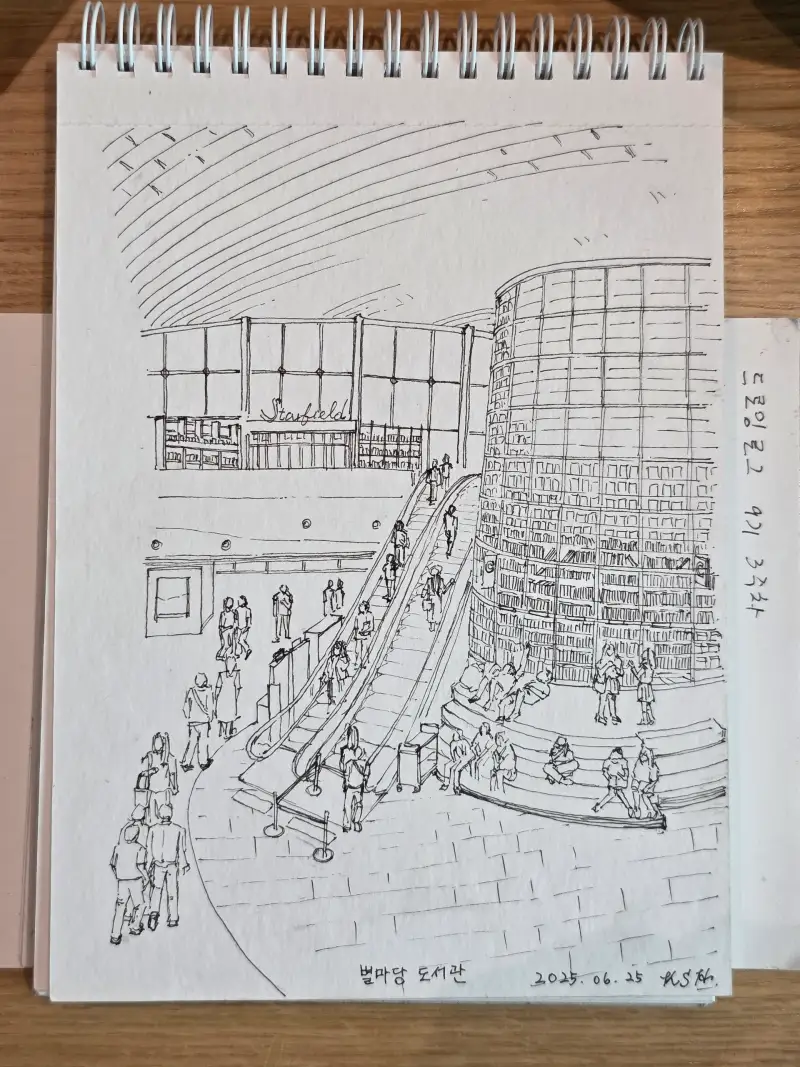 Starfield
별마당 도서관
2025.06.25
드로잉로그 9기 3주차